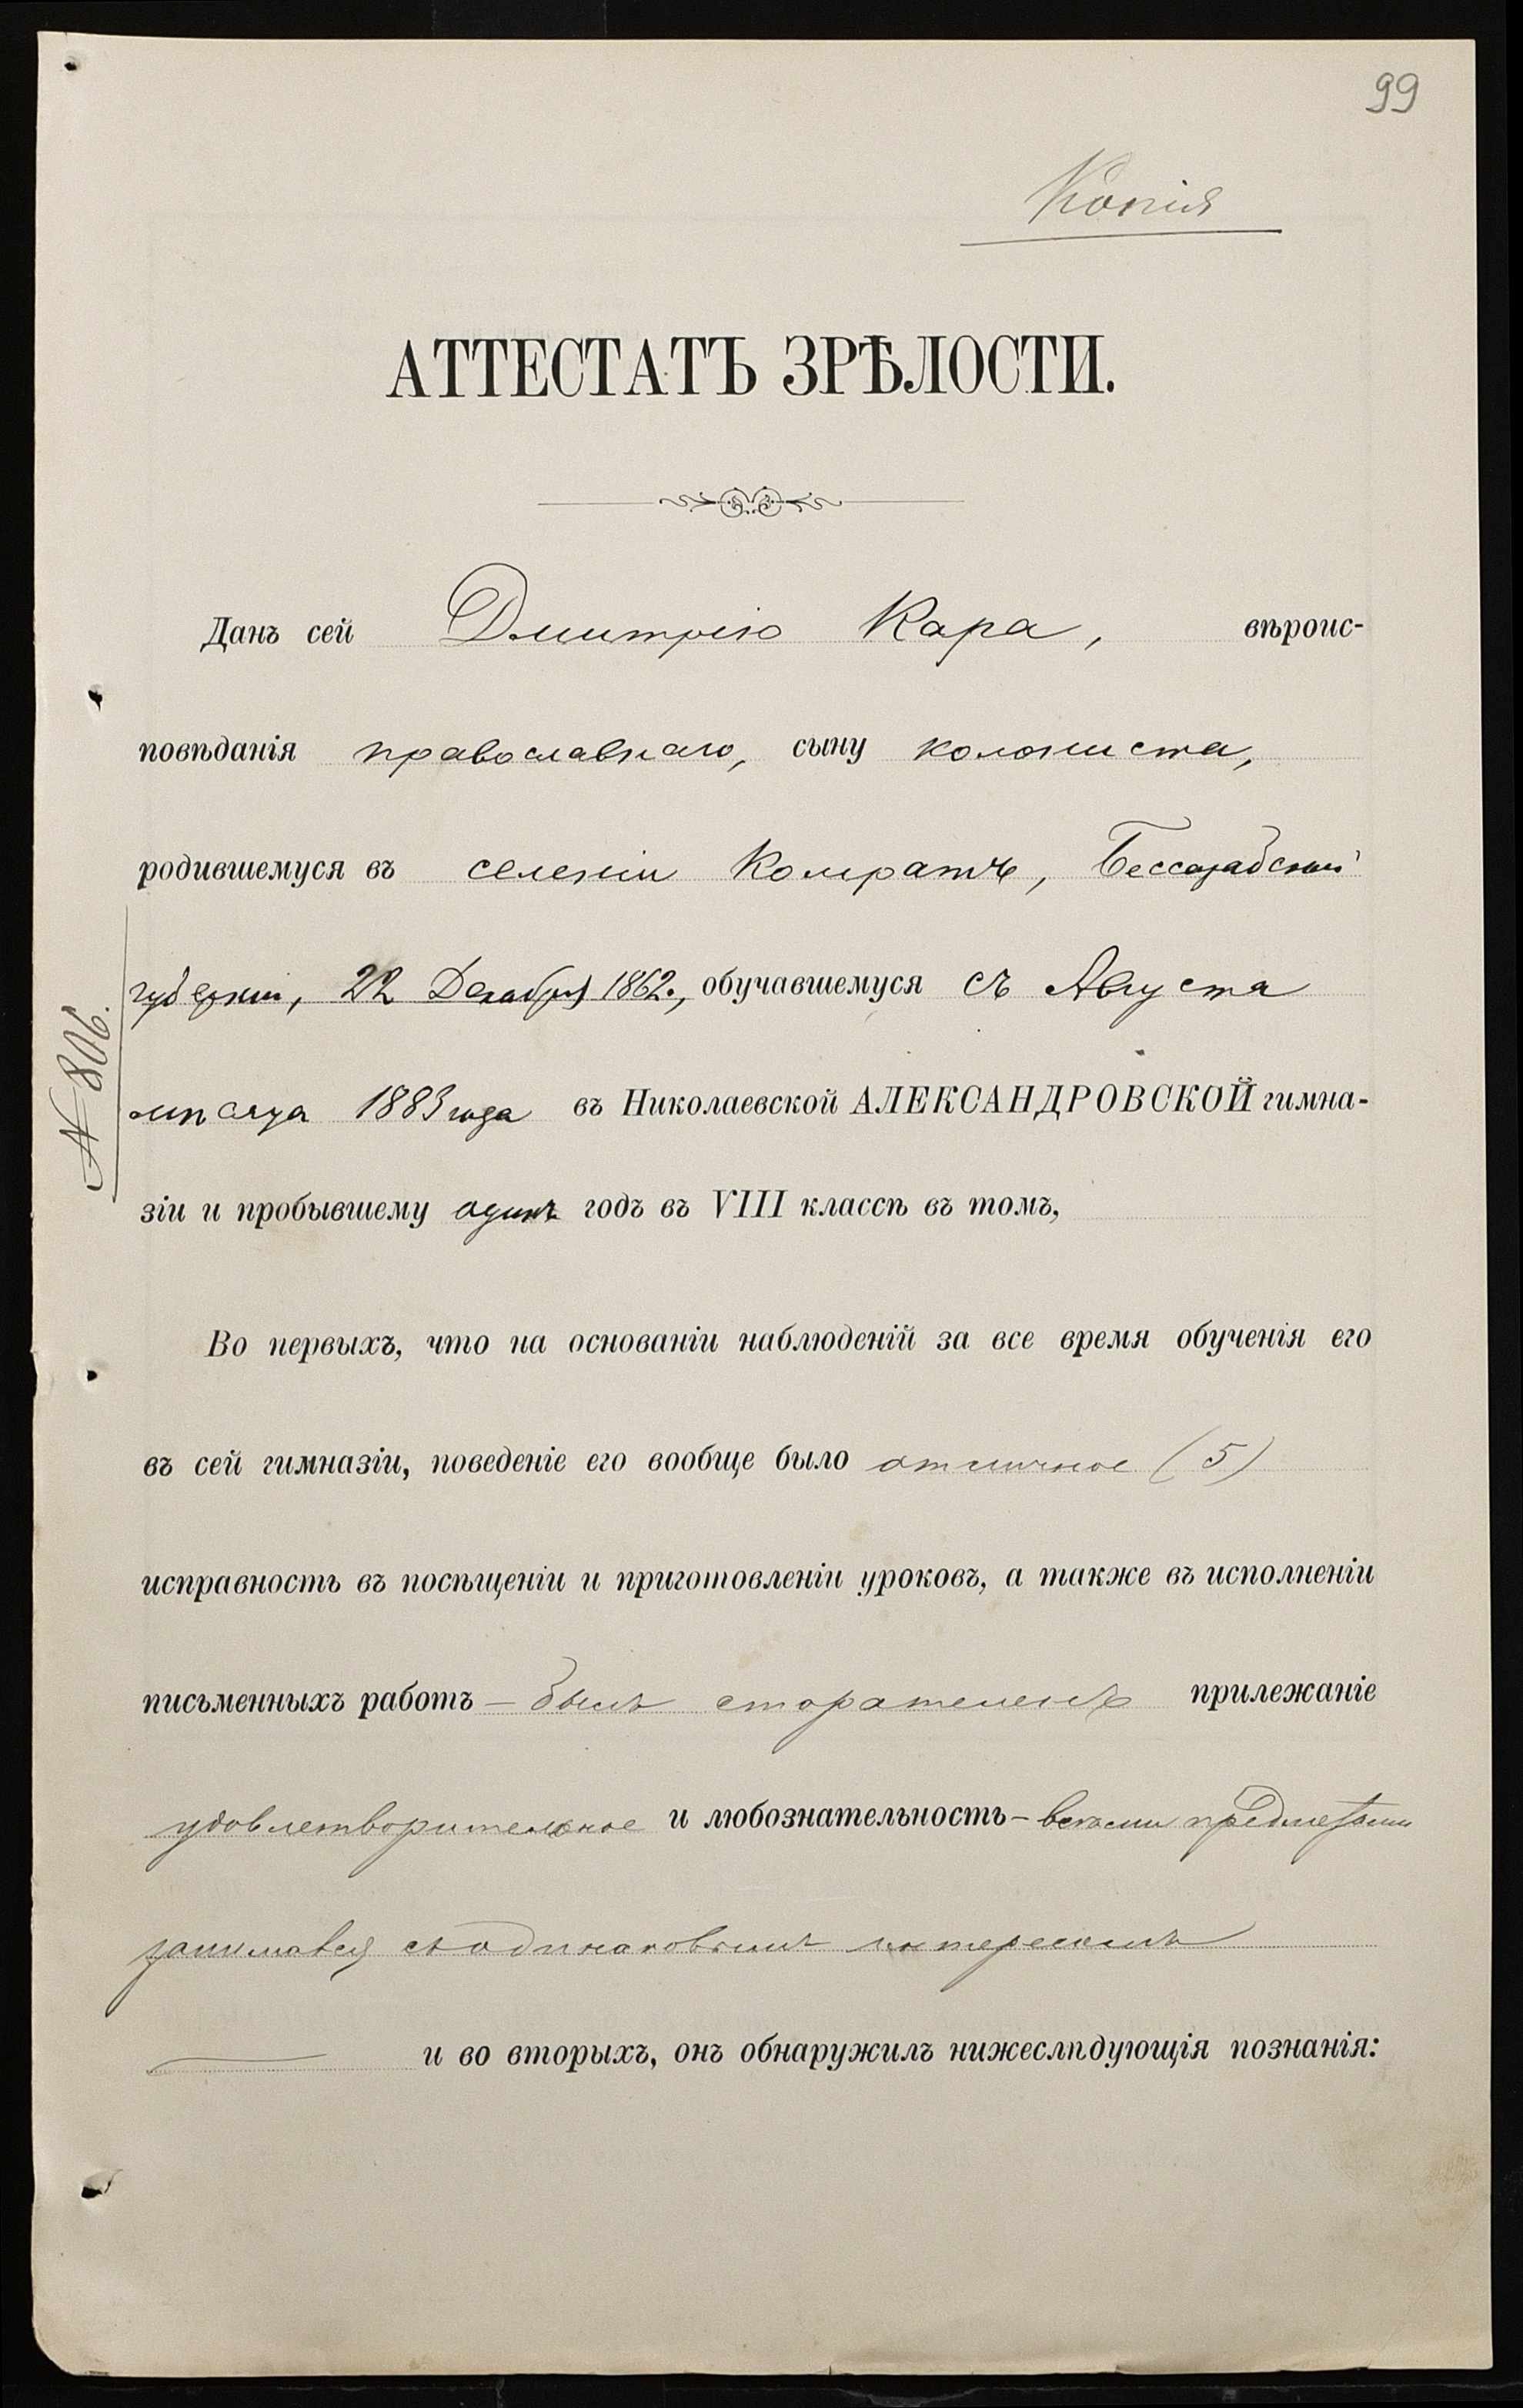 99
Копія
АТТЕСТАТЪ ЗРѢЛОСТИ.
Данъ сей Дмитрію Кара, вѣроис-
повѣданія православнаго, сыну колониста,
родившемуся въ селеніи Комратѣ, Бессарабской
губерніи, 22 Декабря 1862., обучавшемуся съ Августа
мѣсяца 1883 года въ Николаевской АЛЕКСАНДРОВСКОЙ гимна-
зіи и пробывшему одинъ годъ въ VIII классѣ въ томъ,
№ 806.
Во первыхъ, что на основаніи наблюденій за все время обученія его
въ сей гимназіи, поведеніе его вообще было отличное (5)
исправность въ посѣщеніи и приготовленіи уроковъ, а также въ исполненіи
письменныхъ работъ – былъ старателенъ прилежаніе
удовлетворительное и любознательность – всѣми предметами
занимался съ одинаковымъ интересомъ
и во вторыхъ, онъ обнаружилъ нижеслѣдующія познанія: